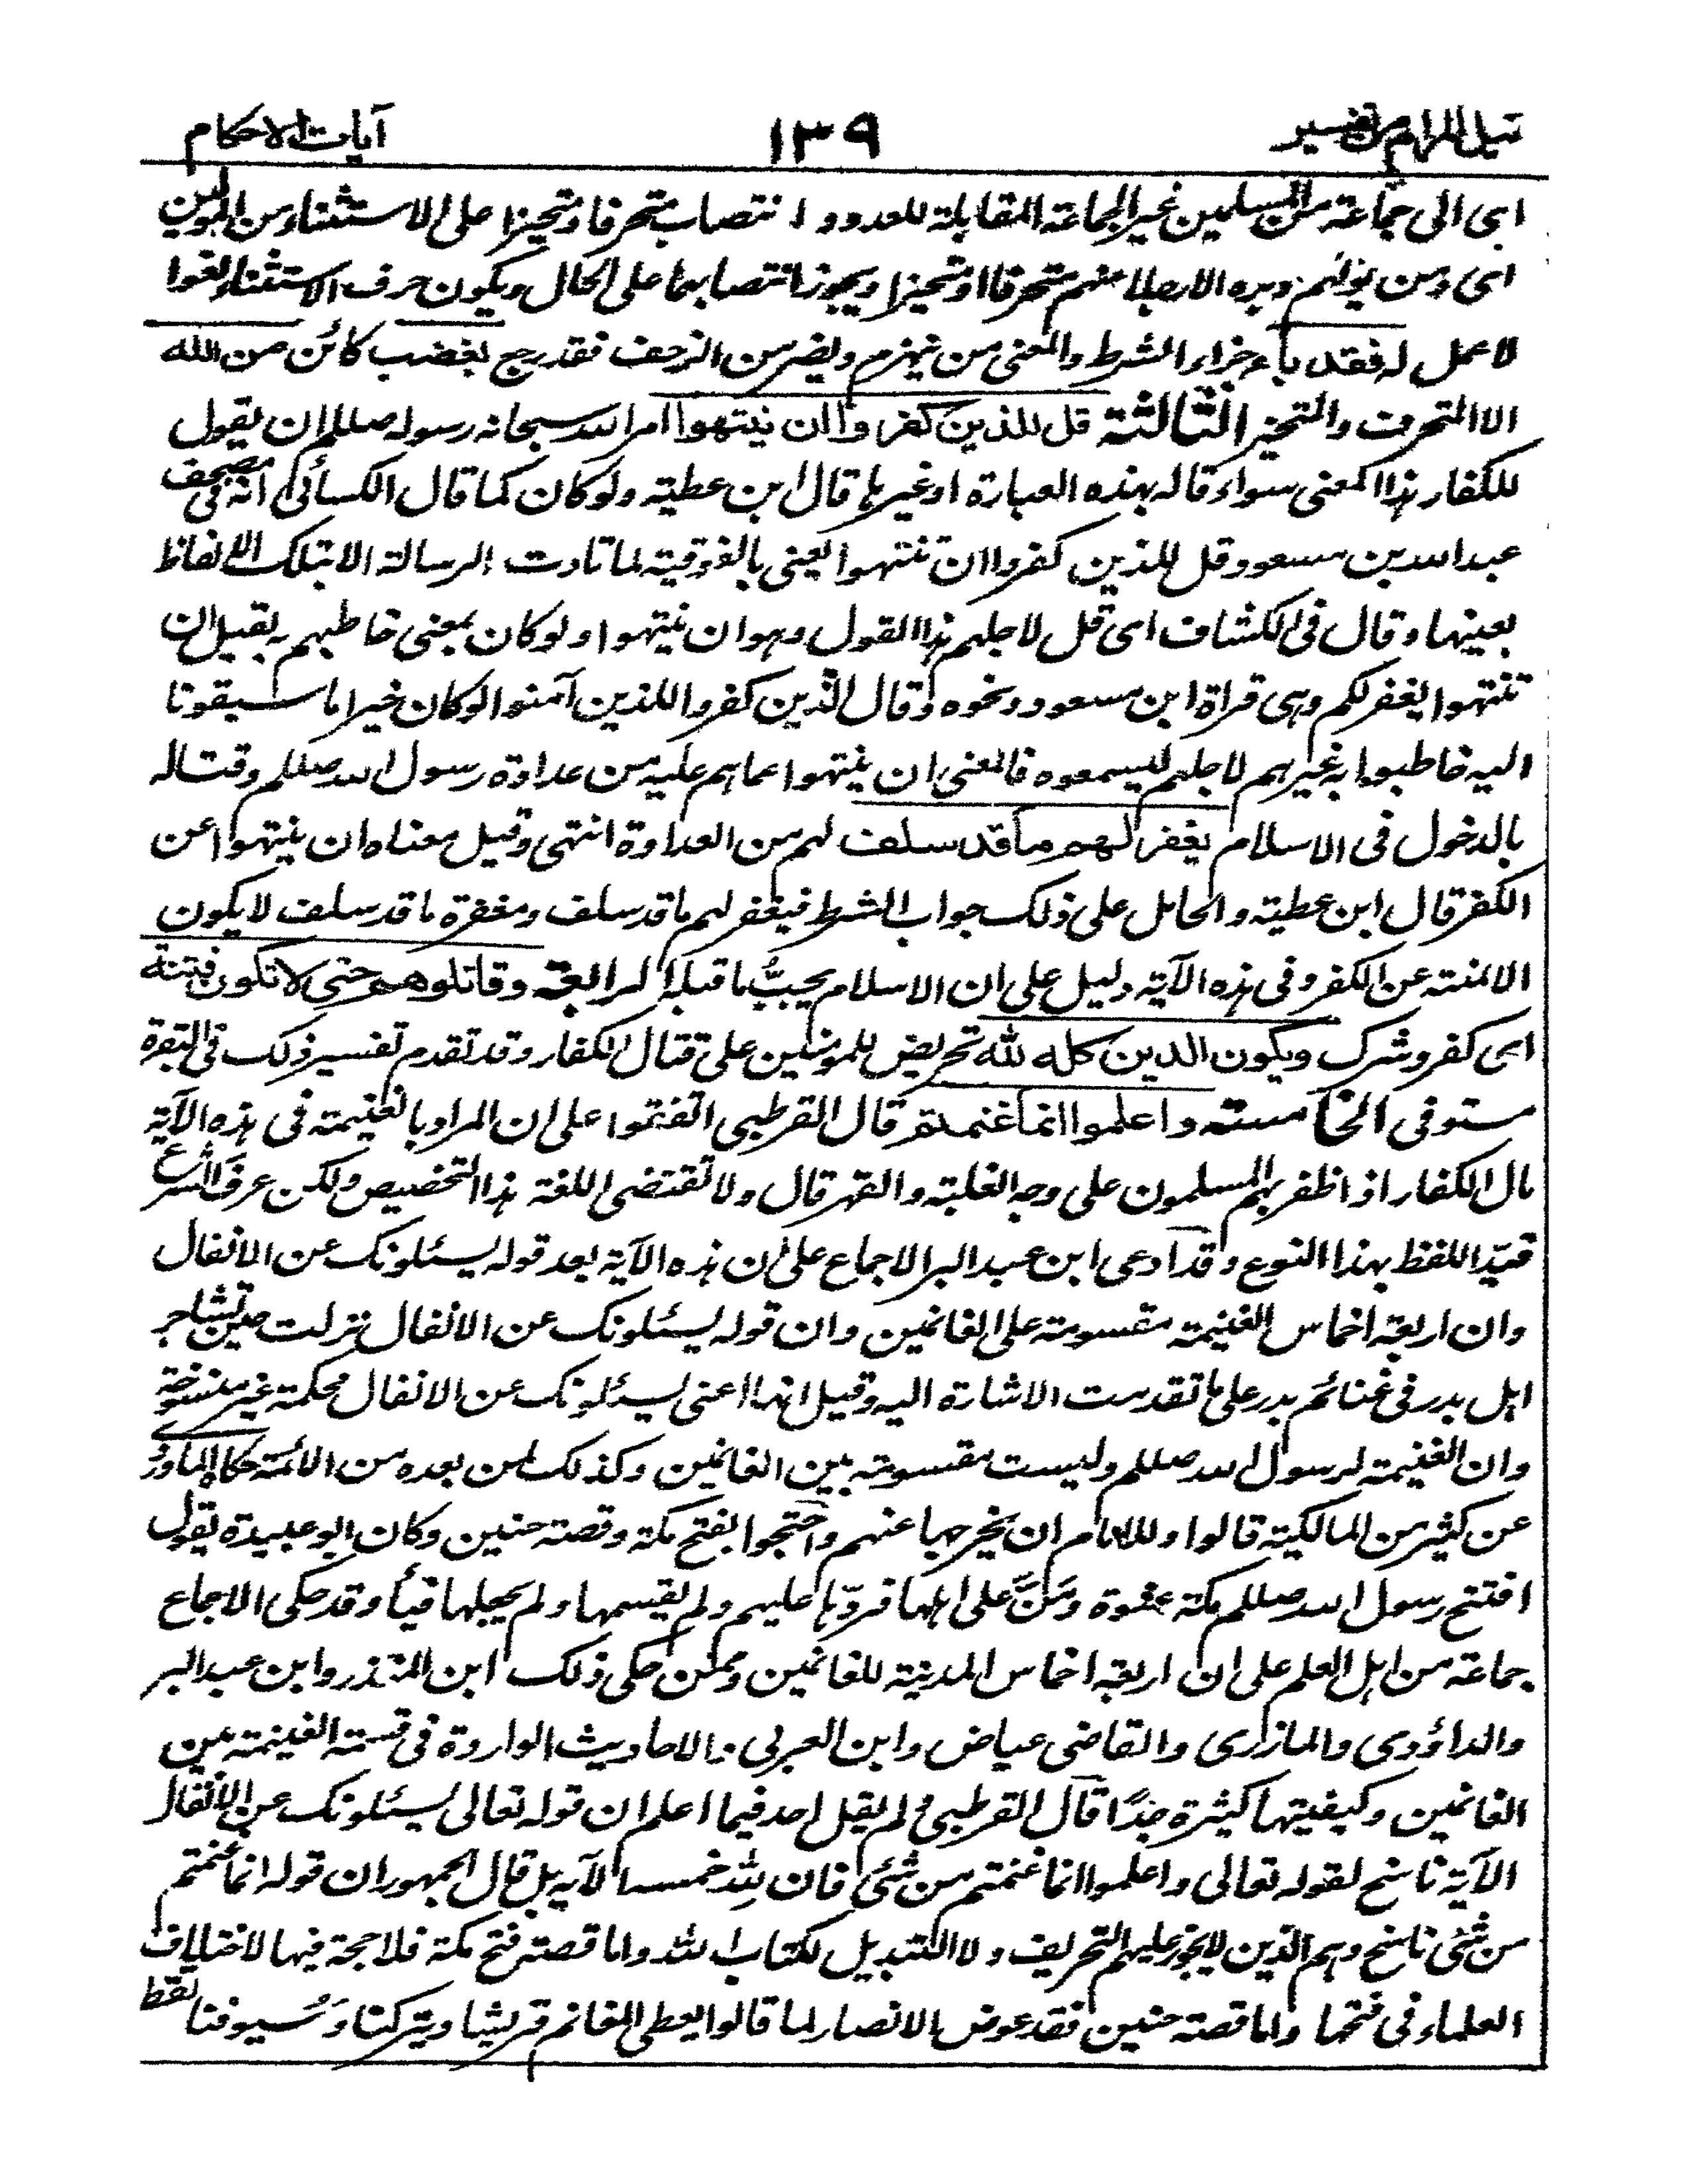 نيل المرام من تفسير ١٣٩ آيات الاحكام
اى الى جماعة من المسلمين غير الجماعة المقابلة للعدو و انتصاب متحرفا ومتحيزا على الاستثناء من المولين
اى ومن يولهم دبره الا رجلا منهم متحرفا او متحيزا ويجوز انتصابهما على الحال ويكون حرف الاستثناء لغوا
لا عمل له فقد باء جزاء الشرط والمعنى من ينهزم ويفر من الزحف فقد رجع بغضب كائن من الله
الا المتحرف والمتحيز الثالثة قل للذين كفروا ان ينتهوا امر الله سبحانه رسوله صللم ان يقول
للكفار هذا المعنى سواء قاله بهذه العبارة او غيرها قال ابن عطية ولو كان كما قال الكسائى انه فى مصحف
عبد الله بن مسعود قل للذين كفروا ان تنتهوا يعنى بالفوقية لما تادت الرسالة الا بتلك الالفاظ
بعينها وقال فى الكشاف اى قل لاجلهم هذا القول وهو ان ينتهوا ولو كان بمعنى خاطبهم به لقيل ان
تنتهوا يغفر لكم وهى قراة ابن مسعود ونحوه وقال الذين كفروا للذين آمنوا لو كان خيرا ما سبقونا
اليه خاطبوا به غيرهم لاجلهم ليسمعوه فالمعنى ان ينتهوا عماهم عليه من عداوة رسول الله صللم وقتاله
بالدخول فى الاسلام يغفر لهم ما قد سلف لهم من العداوة انتهى وقيل معناه ان ينتهوا عن
الكفر قال ابن عطية والحامل على ذلك جواب الشرط فيغفر لهم ما قد سلف ومغفرة ما قد سلف لا يكون
الا لمنته عن الكفر وفى هذه الآية دليل على ان الاسلام يجبّ ما قبله الرابعة وقاتلوهم حتى لا تكون فتنة
اى كفر وشرك ويكون الدين كله لله تحريض للمؤمنين على قتال الكفار وقد تقدم تفسير ذلك فى البقرة
مستوفى الخامسة واعلموا انما غنمتم قال القرطبى اتفقوا على ان المراد بالغنيمة فى هذه الآية
مال الكفار اذا ظفر بهم المسلمون على وجه الغلبة والقهر قال ولا تقتضى اللغة هذا التخصيص ولكن عرف الشرع
قيّد اللفظ بهذا النوع وقد ادعى ابن عبد البر الاجماع على ان هذه الآية بعد قوله يسئلونك عن الانفال
وان اربعة اخماس الغنيمة مقسومة على الغانمين وان قوله يسئلونك عن الانفال نزلت حين تشاجر
اهل بدر فى غنائم بدر على ما تقدمت الاشارة اليه وقيل انها اعنى يسئلونك عن الانفال محكمة غير منسوخة
وان الغنيمة لرسول الله صللم وليست مقسومة بين الغانمين وكذلك لمن بعده من الائمة حكاه الماوردى
عن كثير من المالكية قالوا وللامام ان يخرجها عنهم واحتجوا بفتح مكة وقصة حنين وكان ابو عبيدة يقول
افتتح رسول الله صللم مكة عنوة ومَنَّ على اهلها فردّها عليهم ولم يقسمها ولم يجعلها فيأ وقد حكى الاجماع
جماعة من اهل العلم على ان اربعة اخماس المدينة للغانمين وممن حكى ذلك ابن المنذر وابن عبد البر
والداؤدى والمازرى والقاضى عياض وابن العربى والاحاديث الواردة فى قسمة الغنيمة بين
الغانمين وكيفيتها كثيرة جدًا قال القرطبى ولم يقل احد فيما اعلم ان قوله تعالى يسئلونك عن الانفال
الآية ناسخ لقوله تعالى واعلموا انما غنمتم من شئ فان لله خمسه الآية بل قال الجمهور ان قوله انما غنمتم
من شئ ناسخ وهم الذين لا يجوز عليهم التحريف ولا التبديل لكتاب الله واما قصة فتح مكة فلا حجة فيها لاختلاف
العلماء فى فتحها واما قصة حنين فقد عوض الانصار لما قالوا يعطى الغنائم قريشا ويتركنا وَسُيوفنا تقط